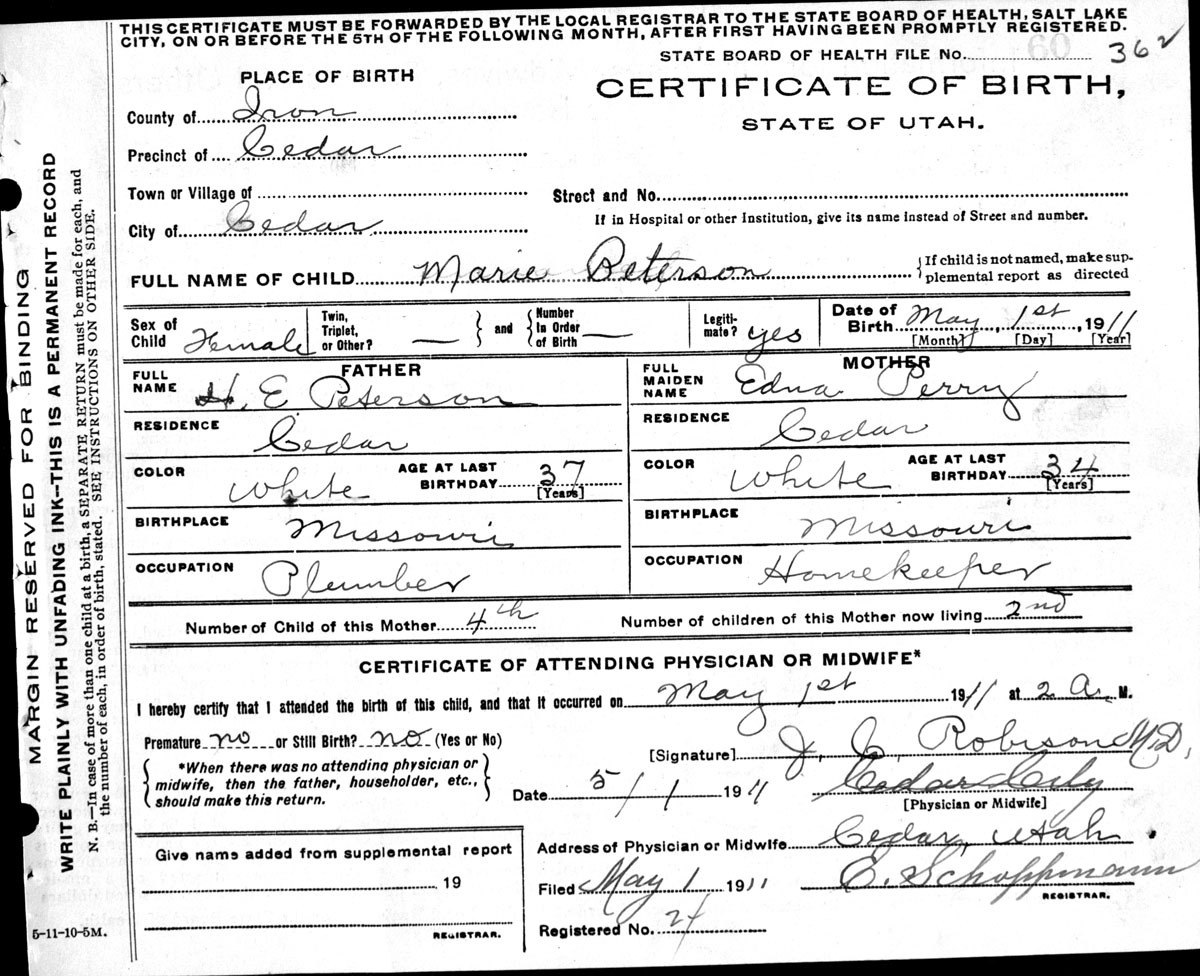 THIS CERTIFICATE MUST BE FORWARDED BY THE LOCAL REGISTRAR TO THE STATE BOARD OF HEALTH, SALT LAKE
CITY, ON OR BEFORE THE 5TH OF THE FOLLOWING MONTH, AFTER FIRST HAVING BEEN PROMPTLY REGISTERED.
STATE BOARD OF HEALTH FILE No. 362
PLACE OF BIRTH
CERTIFICATE OF BIRTH,
STATE OF UTAH.
County of Iron
Precinct of Cedar
Town or Village of
Street and No.
If in Hospital or other Institution, give its name instead of Street and number.
City of Cedar
FULL NAME OF CHILD Marie Peterson
{If child is not named, make sup-
plemental report as directed
Sex of Child Female
Twin, Triplet, or Other? — } and { Number In Order of Birth —
Legiti-mate? yes
Date of Birth May, 1st, 1911
[Month] [Day] [Year]
FATHER
FULL NAME H. E. Peterson
RESIDENCE Cedar
COLOR White
AGE AT LAST BIRTHDAY 37
[Years]
BIRTHPLACE Missouri
OCCUPATION Plumber
MOTHER
FULL MAIDEN NAME Edna Perry
RESIDENCE Cedar
COLOR White
AGE AT LAST BIRTHDAY 34
[Years]
BIRTHPLACE Missouri
OCCUPATION Homekeeper
Number of Child of this Mother 4th
Number of children of this Mother now living 2nd
CERTIFICATE OF ATTENDING PHYSICIAN OR MIDWIFE*
I hereby certify that I attended the birth of this child, and that it occurred on May 1st 1911 at 2 A. M.
Premature no or Still Birth? no (Yes or No)
[Signature] J. C. Robison M.D.
{ *When there was no attending physician or
midwife, then the father, householder, etc.,
should make this return. }
Date 5/1 1911 Cedar City
[Physician or Midwife]
Give name added from supplemental report
19
REGISTRAR.
Address of Physician or Midwife Cedar, Utah
Filed May 1 1911 E. Schoppmann
REGISTRAR.
Registered No. 24
5-11-10-5M.
MARGIN RESERVED FOR BINDING
WRITE PLAINLY WITH UNFADING INK—THIS IS A PERMANENT RECORD
N. B.—In case of more than one child at a birth, a SEPARATE RETURN must be made for each, and
the number of each, in order of birth, stated. SEE INSTRUCTIONS ON OTHER SIDE.